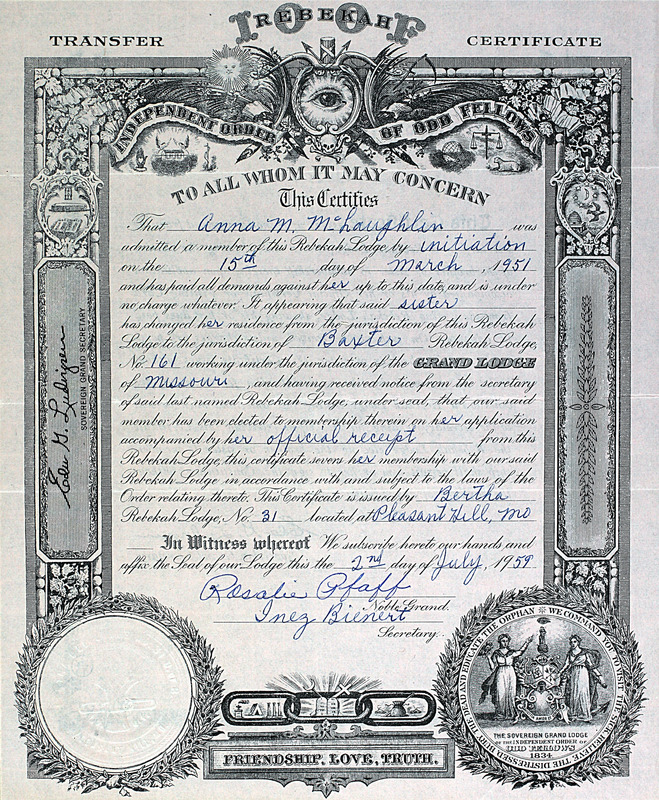 I REBEKAH O O F
TRANSFER CERTIFICATE
INDEPENDENT ORDER OF ODD FELLOWS
TO ALL WHOM IT MAY CONCERN
This Certifies
That Anna M. McLaughlin was
admitted a member of this Rebekah Lodge by initiation
on the 15th day of March, 1951
and has paid all demands against her up to this date, and is under
no charge whatever. It appearing that said sister
has changed her residence from the jurisdiction of this Rebekah
Lodge to the jurisdiction of Baxter Rebekah Lodge,
No. 161 working under the jurisdiction of the GRAND LODGE
of Missouri, and having received notice from the secretary
of said last named Rebekah Lodge, under seal, that our said
member has been elected to membership therein on her application
accompanied by her official receipt from this
Rebekah Lodge, this certificate severs her membership with our said
Rebekah Lodge in accordance with and subject to the laws of the
Order relating thereto. This Certificate is issued by Bertha
Rebekah Lodge, No. 31 located at Pleasant Hill, Mo
In Witness whereof We subscribe hereto our hands and
affix the Seal of our Lodge this the 2nd day of July, 1959
Rosalie Pfaff
Noble Grand.
Inez Bienert
Secretary.
SOVEREIGN GRAND SECRETARY
WE COMMAND YOU TO VISIT THE SICK, RELIEVE THE DISTRESSED, BURY THE DEAD AND EDUCATE THE ORPHAN
THE SOVEREIGN GRAND LODGE
OF THE INDEPENDENT ORDER OF
ODD FELLOWS
1834
FRIENDSHIP, LOVE, TRUTH.